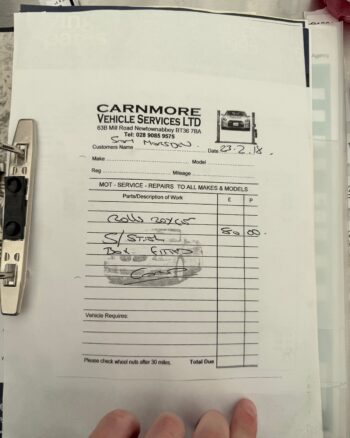 CARNMORE
VEHICLE SERVICES LTD
63B Mill Road Newtownabbey BT36 7BA
Tel: 028 9085 9575
Customers Name Sam Date 23.2.18.
Make Model
Reg Mileage
MOT - SERVICE - REPAIRS TO ALL MAKES & MODELS
Parts/Description of Work £ P
50 00
S/Steel
Box Fitted
Vehicle Requires:
Please check wheel nuts after 30 miles. Total Due